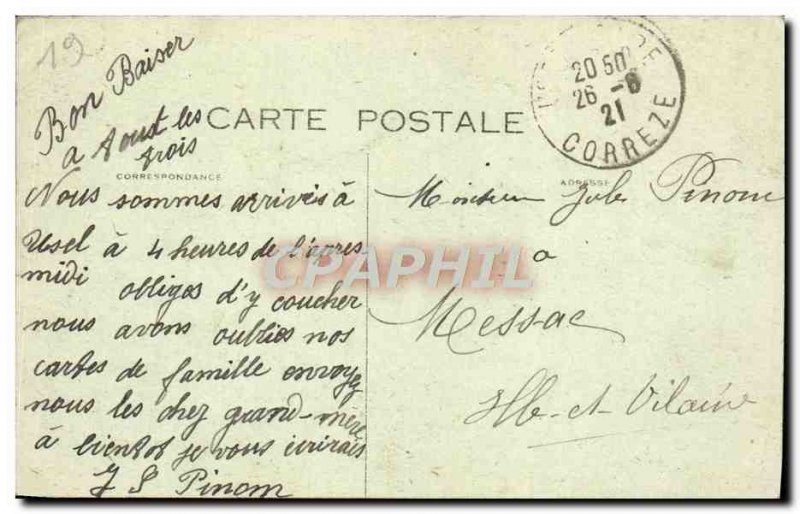 19
Bon Baiser
a toust les
trois
CARTE POSTALE
CORRESPONDANCE
ADRESSE
20 60
26 - 6
21
CORREZE
Nous sommes arrivés à
Usel à 4 heures de l'apres
midi obliges d'y coucher
nous avons oublies nos
cartes de famille envoyez
nous les chez grand-mère
à bientot je vous ecrirais
J S Pinom
Monsieur Jules Pinom
a
Messac
Ille-et-Vilaine
CPAPHIL